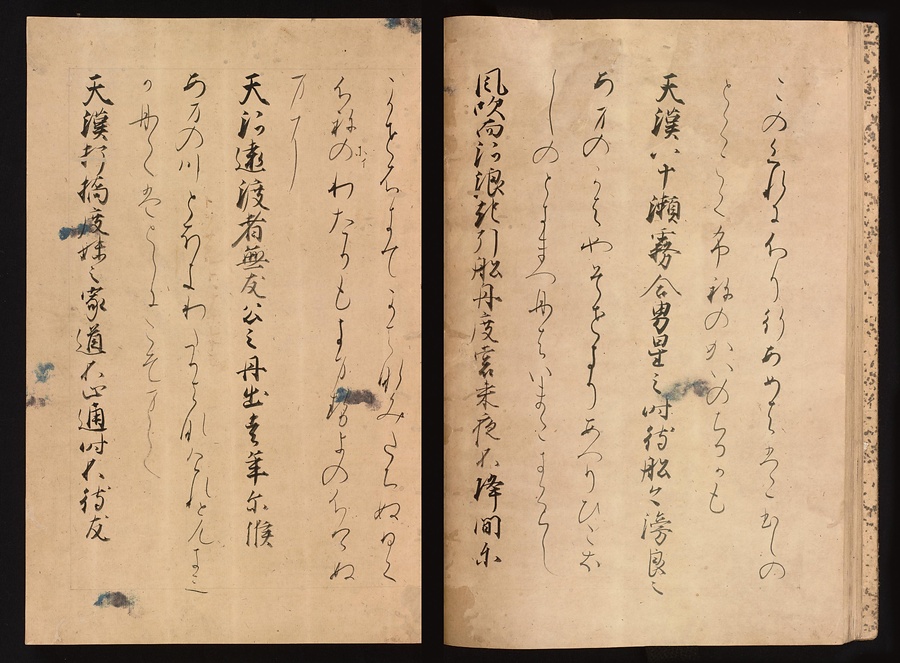 このくれにふり行あめはひこほしの
とくこく布祢のかいのちるかも
天漢八十瀬霧合男星之時待船今滂良之
あまのかはやそせきりあへりひこほ
しのときまつ舟はいましこくらし
風吹而河浪起引船丹度裳来夜不降間尓
かせふきてかはなみたちぬひく
ふねのわたりもきませよのふけぬ
まに
天河遠渡者無友公之舟出者年尓候
あまの川とほきわたりはなけれともきみ
か舟てはとしにこそまて
天漢打橋度妹之家道不止通時不待友